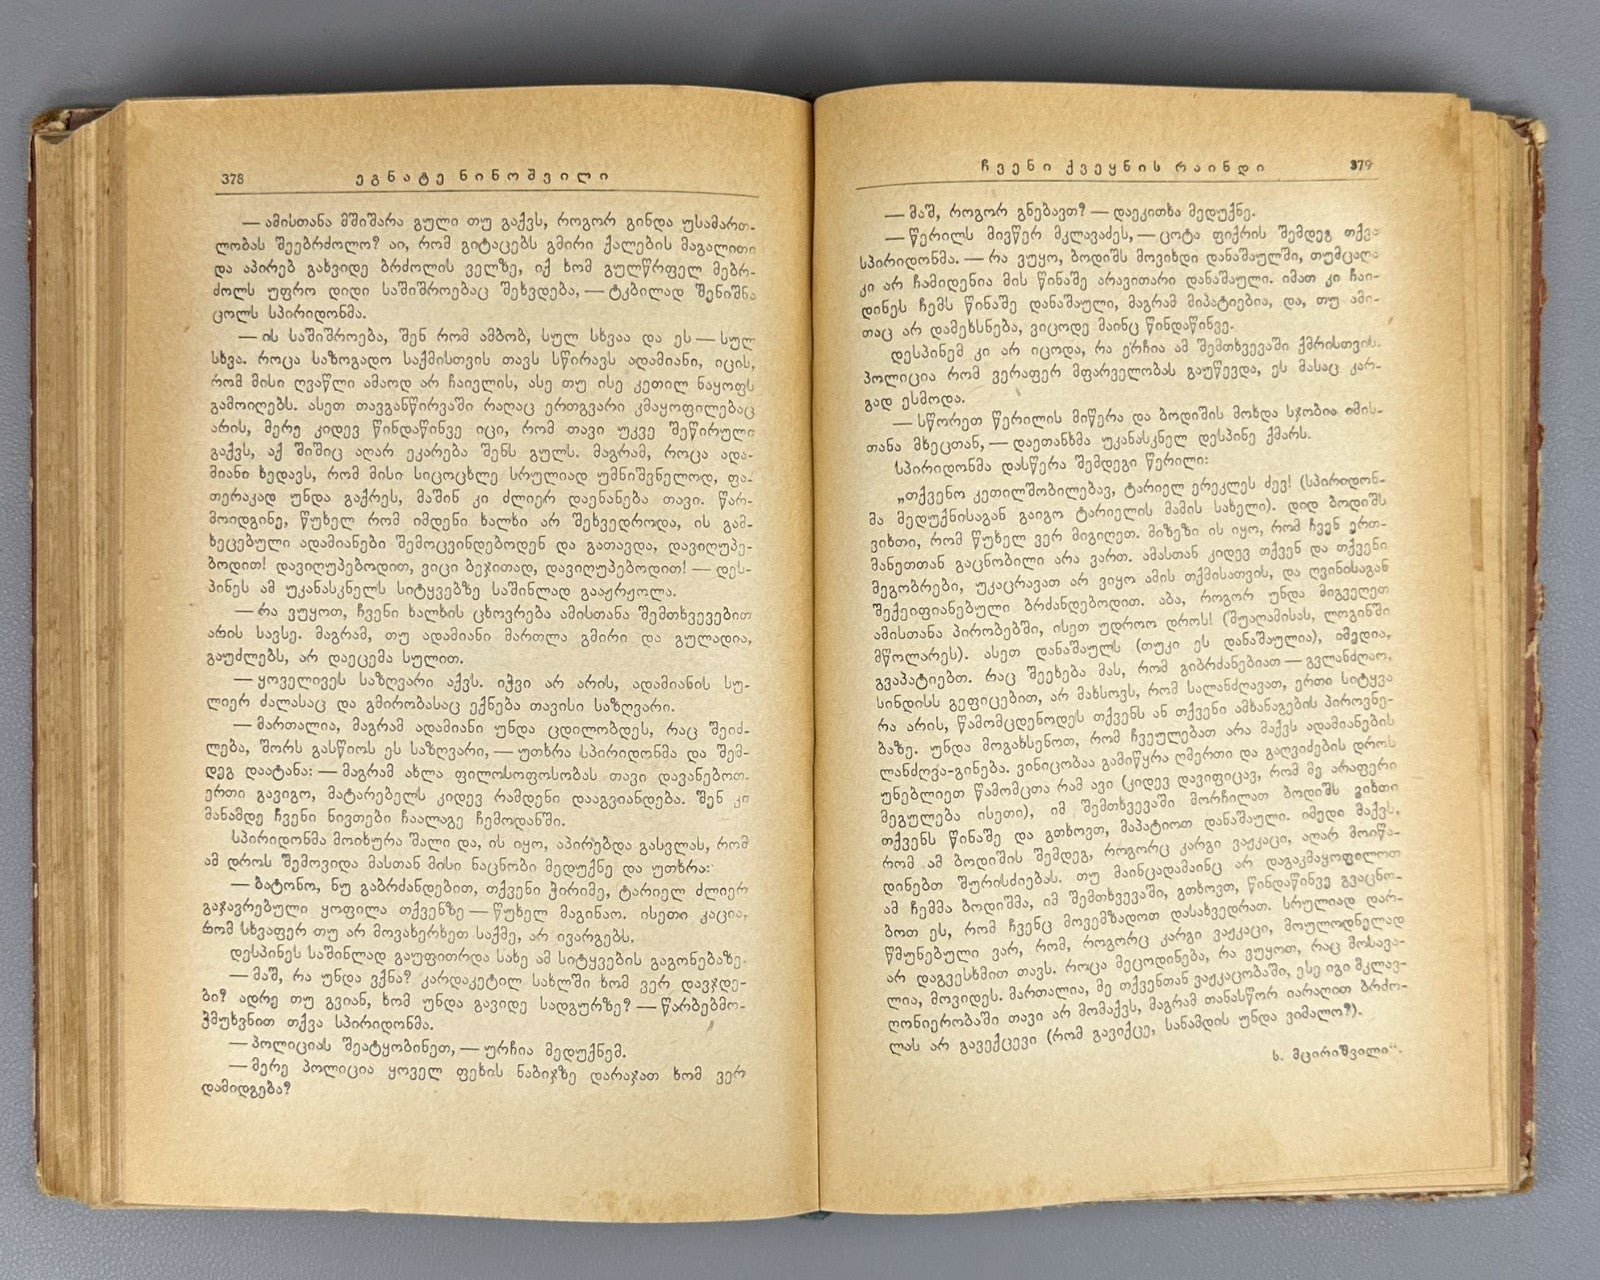 378
ეგნატე ნინოშვილი
— ამისთანა მშიშარა გული თუ გაქვს, როგორ გინდა უსამართ-
ლობას შეებრძოლო? აი, რომ გიტაცებს გმირი ქალების მაგალითი
და აპირებ გახვიდე ბრძოლის ველზე, იქ ხომ გულწრფელ მებრ-
ძოლს უფრო დიდი საშიშროებაც შეხვდება, — ტკბილად შენიშნა
ცოლს სპირიდონმა.
— ის საშიშროება, შენ რომ ამბობ, სულ სხვაა და ეს — სულ
სხვა. როცა საზოგადო საქმისთვის თავს სწირავს ადამიანი, იცის,
რომ მისი ღვაწლი ამაოდ არ ჩაივლის, ასე თუ ისე კეთილ ნაყოფს
გამოიღებს. ასეთ თავგანწირვაში რაღაც ერთგვარი კმაყოფილებაც
არის, მერე კიდევ წინდაწინვე იცი, რომ თავი უკვე შეწირული
გაქვს, აქ შიშიც აღარ ეკარება შენს გულს. მაგრამ, როცა ადა-
მიანი ხედავს, რომ მისი სიცოცხლე სრულიად უმნიშვნელოდ, ფა-
თერაკად უნდა გაქრეს, მაშინ კი ძლიერ დაენანება თავი. წარ-
მოიდგინე, წუხელ რომ იმდენი ხალხი არ შეხვედროდა, ის გამ-
ხეცებული ადამიანები შემოცვინდებოდენ და გათავდა, დავიღუპე-
ბოდით! დავიღუპებოდით, ვიცი ბეჯითად, დავიღუპებოდით! — დეს-
პინეს ამ უკანასკნელს სიტყვებზე საშინლად გააჟრჟოლა.
— რა ვუყოთ, ჩვენი ხალხის ცხოვრება ამისთანა შემთხვევებით
არის სავსე. მაგრამ, თუ ადამიანი მართლა გმირი და გულადია,
გაუძლებს, არ დაეცემა სულით.
— ყოველივეს საზღვარი აქვს. იჭვი არ არის, ადამიანის სუ-
ლიერ ძალასაც და გმირობასაც ექნება თავისი საზღვარი.
— მართალია, მაგრამ ადამიანი უნდა ცდილობდეს, რაც შეიძ-
ლება, შორს გასწიოს ეს საზღვარი, — უთხრა სპირიდონმა და შემ-
დეგ დაატანა: — მაგრამ ახლა ფილოსოფოსობას თავი დავანებოთ.
ერთი გავიგო, მატარებელს კიდევ რამდენი დააგვიანდება. შენ კი
მანამდე ჩვენი ნივთები ჩაალაგე ჩემოდანში.
სპირიდონმა მოიხურა შალი და, ის იყო, აპირებდა გასვლას, რომ
ამ დროს შემოვიდა მასთან მისი ნაცნობი მედუქნე და უთხრა:
— ბატონო, ნუ გაბრძანდებით, თქვენი ჭირიმე, ტარიელ ძლიერ
გაჯავრებული ყოფილა თქვენზე — წუხელ მაგინაო. ისეთი კაცია,
რომ სხვაფერ თუ არ მოვახერხეთ საქმე, არ ივარგებს.
დესპინეს საშინლად გაუფითრდა სახე ამ სიტყვების გაგონებაზე.
— მაშ, რა უნდა ვქნა? კარდაკეტილ სახლში ხომ ვერ დავჯდე-
ბი? ადრე თუ გვიან, ხომ უნდა გავიდე სადგურზე? — წარბებმო-
ჭმუხვნით თქვა სპირიდონმა.
— პოლიციას შეატყობინეთ, — ურჩია მედუქნემ.
— მერე პოლიცია ყოველ ფეხის ნაბიჯზე დარაჯათ ხომ ვერ
დამიდგება?
ჩვენი ქვეყნის რაინდი
379
— მაშ, როგორ გნებავთ? — დაეკითხა მედუქნე.
— წერილს მივწერ მკლავაძეს, — ცოტა ფიქრის შემდეგ თქვა
სპირიდონმა. — რა ვუყო, ბოდიშს მოვიხდი დანაშაულში, თუმცაღა
კი არ ჩამიდენია მის წინაშე არავითარი დანაშაული. იმათ კი ჩაი-
დინეს ჩემს წინაშე დანაშაული, მაგრამ მიპატიებია, და, თუ ამი-
თაც არ დამეხსნება, ვიცოდე მაინც წინდაწინვე.
დესპინემ კი არ იცოდა, რა ერჩია ამ შემთხვევაში ქმრისთვის.
პოლიცია რომ ვერაფერ მფარველობას გაუწევდა, ეს მასაც კარ-
გად ესმოდა.
— სწორეთ წერილის მიწერა და ბოდიშის მოხდა სჯობია იმის-
თანა მხეცთან, — დაეთანხმა უკანასკნელ დესპინე ქმარს.
სპირიდონმა დასწერა შემდეგი წერილი:
„თქვენო კეთილშობილებავ, ტარიელ ერეკლეს ძევ! (სპირიდონ-
მა მედუქნისაგან გაიგო ტარიელის მამის სახელი). დიდ ბოდიშს
ვიხთი, რომ წუხელ ვერ მიგიღეთ. მიზეზი ის იყო, რომ ჩვენ ერთ-
მანეთთან გაცნობილი არა ვართ. ამასთან კიდევ თქვენ და თქვენი
მეგობრები, უკაცრავათ არ ვიყო ამის თქმისათვის, და ღვინისაგან
შექეიფიანებული ბრძანდებოდით. აბა, როგორ უნდა მიგველეთ
ამისთანა პირობებში, ისეთ უდროო დროს! (შუაღამისას, ლოგინში
მწოლარეს). ასეთ დანაშაულს (თუკი ეს დანაშაულია), იმედია,
გვაპატიებთ. რაც შეეხება მას, რომ გიბრძანებიათ — გვლანძღაო,
სინდისს გეფიცებით, არ მახსოვს, რომ სალანძღავათ, ერთი სიტყვა
რა არის, წამომცდენოდეს თქვენს ან თქვენი ამხანაგების პიროვნე-
ბაზე. უნდა მოგახსენოთ, რომ ჩვეულებათ არა მაქვს ადამიანების
ლანძღვა-გინება. ვინიცობაა გამიწყრა ღმერთი და გაღვიძების დროს
უნებლიეთ წამომცთა რამ ავი (კიდევ დავიფიცავ, რომ მე არაფერი
მეგულება ისეთი), იმ შემთხვევაში მორჩილათ ბოდიშს ვიხთი
თქვენს წინაშე და გთხოვთ, მაპატიოთ დანაშაული. იმედი მაქვს,
რომ ამ ბოდიშის შემდეგ, როგორც კარგი ვაჟკაცი, აღარ მოიწა-
დინებთ შურისძიებას. თუ მაინცადამაინც არ დაგაკმაყოფილოთ
ამ ჩემმა ბოდიშმა, იმ შემთხვევაში, გთხოვთ, წინდაწინვე გვაცნო-
ბოთ ეს, რომ ჩვენც მოვემზადოთ დასახვედრათ. სრულიად დარ-
წმუნებული ვარ, რომ, როგორც კარგი ვაჟკაცი, მოულოდნელად
არ დაგვესხმით თავს. როცა მეცოდინება, რა ვუყოთ, რაც მოსავა-
ლია, მოვიდეს. მართალია, მე თქვენთან ვაჟკაცობაში, ესე იგი მკლავ-
ღონიერობაში თავი არ მომაქვს, მაგრამ თანასწორ იარაღით ბრძო-
ლას არ გავექცევი (რომ გავიქცე, სანამდის უნდა ვიმალო?).
ს. მცირიშვილი“.